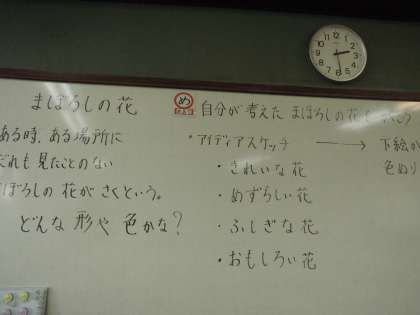 まぼろしの花
ある時、ある場所に
だれも見たことのない
まぼろしの花がさくという。
どんな形や色かな?
め
自分が考えたまぼろしの花を
・アイディアスケッチ → 下絵か
色ぬり
・きれいな花
・めずらしい花
・ふしぎな花
・おもしろい花